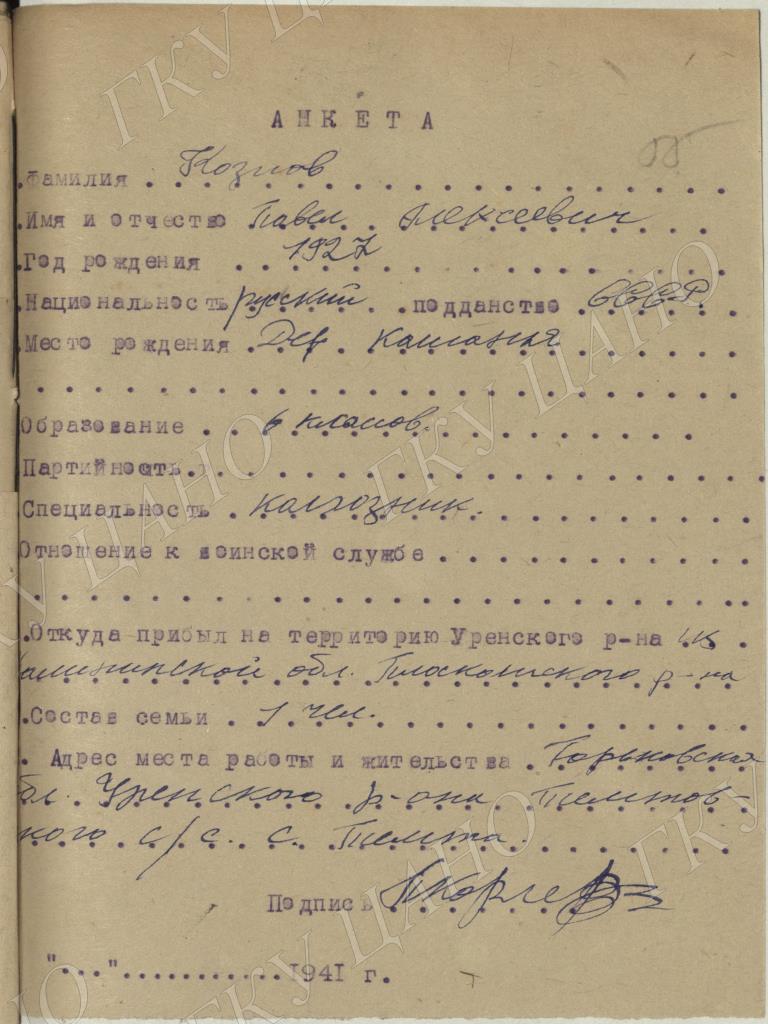 АНКЕТА
55
Фамилия Козлов
Имя и отчество Павел Алексеевич
Год рождения 1927
Национальность русский подданство СССР.
Место рождения Дер.
Образование 6 класов.
Партийность
Специальность колхозник.
Отношение к воинской службе
Откуда прибыл на территорию Уренского р-на из
Калининской обл. Плоскошского р-на
Состав семьи 1 чел.
Адрес места работы и жительства Горьковская
обл. Уренского р-она Темтов-
ского с/с. с. Темта.
Подпись
"..."...........1941 г.
ГКУ ЦАНО